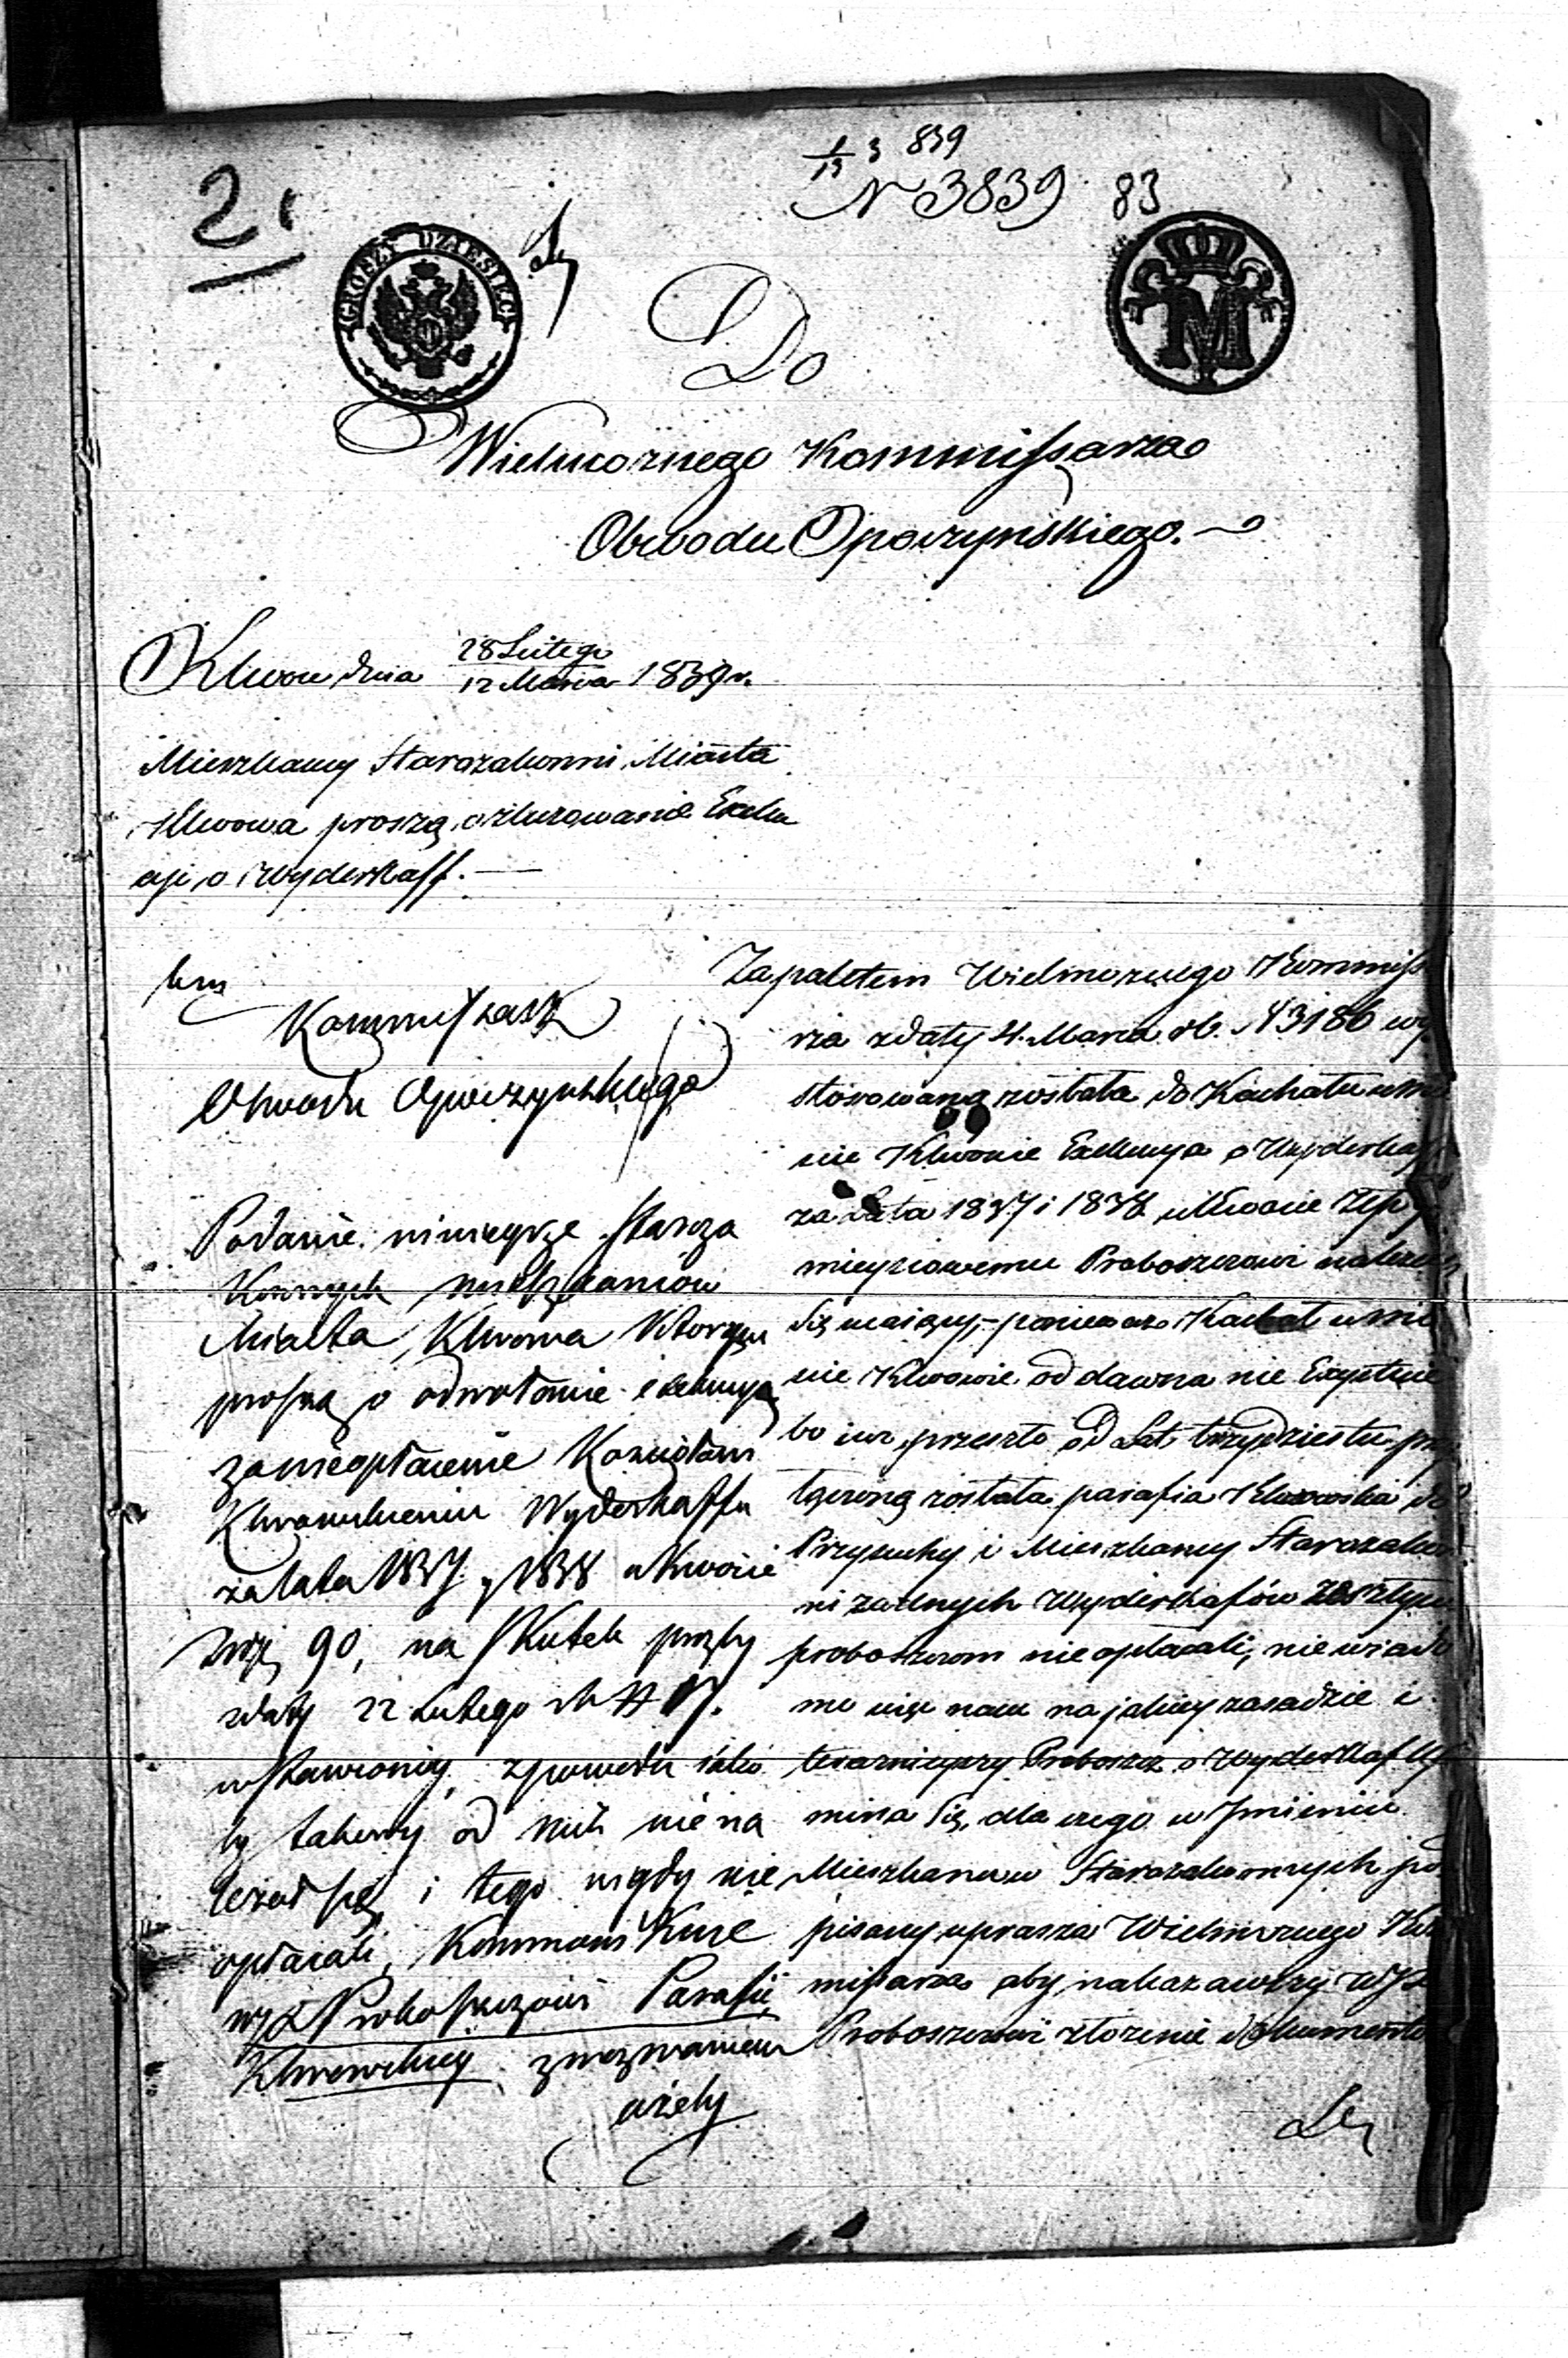 2.
1/13 3 839
N 3839
83
GROSZY DZIESIĘC
M
Do
Wielmożnego Kommissarza
Obwodu Opoczyńskiego.
Klwow dnia 28 Lutego / 12 Marca 1839 r.
Mieszkancy Starozakonni Miasta
Klwowa proszą o Exeku
cyi o wyderkaff.
Kommissarz
Obwodu Opoczynskiego
Podanie ninieysze Staroza
konnych mieszkancow
Miasta Klwowa którzy
proszą o odwołanie exekucyi
za nieopłacenie Kościołowi
Klwowskiemu Wyderkaffu
za lata 1837 y 1838 w kwocie
90, na skutek proźby
z daty 22 Lutego
wstawioney, z powodu iako
by takowy od nich nie na
leżał się i tego nigdy nie
opłacali,
Proboszczowi Parafii
Klwowskiey z wezwaniem
ażeby
Za paletem Wielmożnego Kommiss
rza z daty 4. Marca rb. N 3186 wy
stosowaną została do Kachału w mie
ście Klwowie Exekucya o Wyderkaf
za Lata 1837 i 1838 w kwocie Złp
mieyscowemu Proboszczowi należeć
się maiący, ponieważ Kachał w mie
ście Klwowie od dawna nie Exystuie
bo iuż przeszło od Lat trzydziestu przy
łączoną została parafia Klwowska do
Przysuchy i Mieszkancy Starozakon
ni żadnych Wyderkafów
proboszczom nie opłacali, nie wiado
mo więc nam na jakiey zasadzie i
teraznieyszy Proboszcz o Wyderkaf up
mina się, dla czego w Jmieniu
Mieszkancow Starozakonnych pod
pisany uprasza Wielmożnego Kom
missarza aby nakazawszy WJX
Proboszczowi złożenie dokumentu